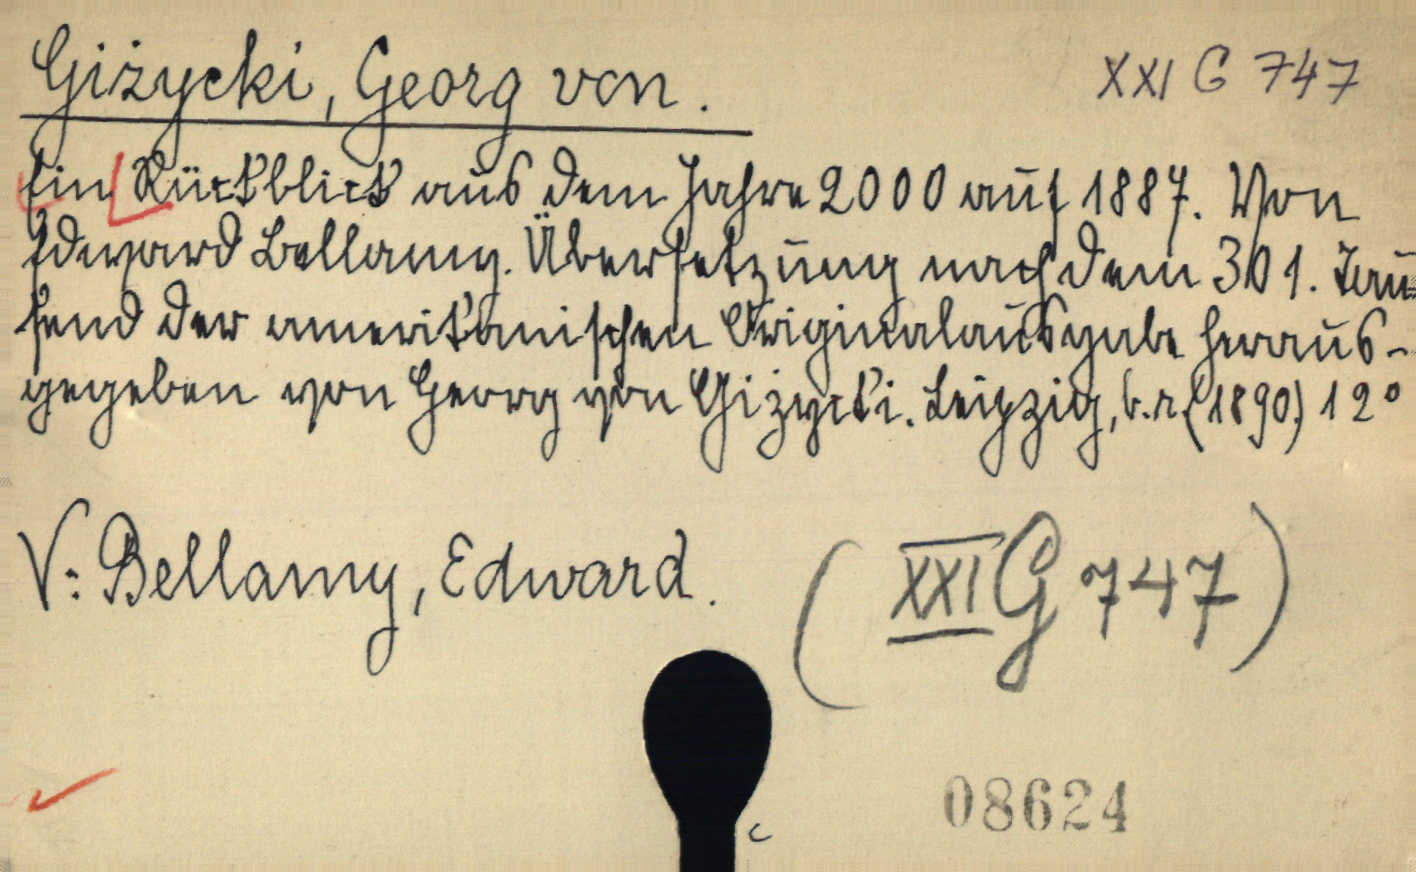 Giżycki, Georg von.
XXI G 747
Ein Rückblick aus dem Jahre 2000 auf 1887. Von
Edward Bellamy. Übersetzung nach dem 301. Tau-
send der amerikanischen Originalausgabe heraus-
gegeben von Georg von Giżycki. Leipzig, (1890.) 12°
V: Bellamy, Edward.
(XXI G 747)
08624
c